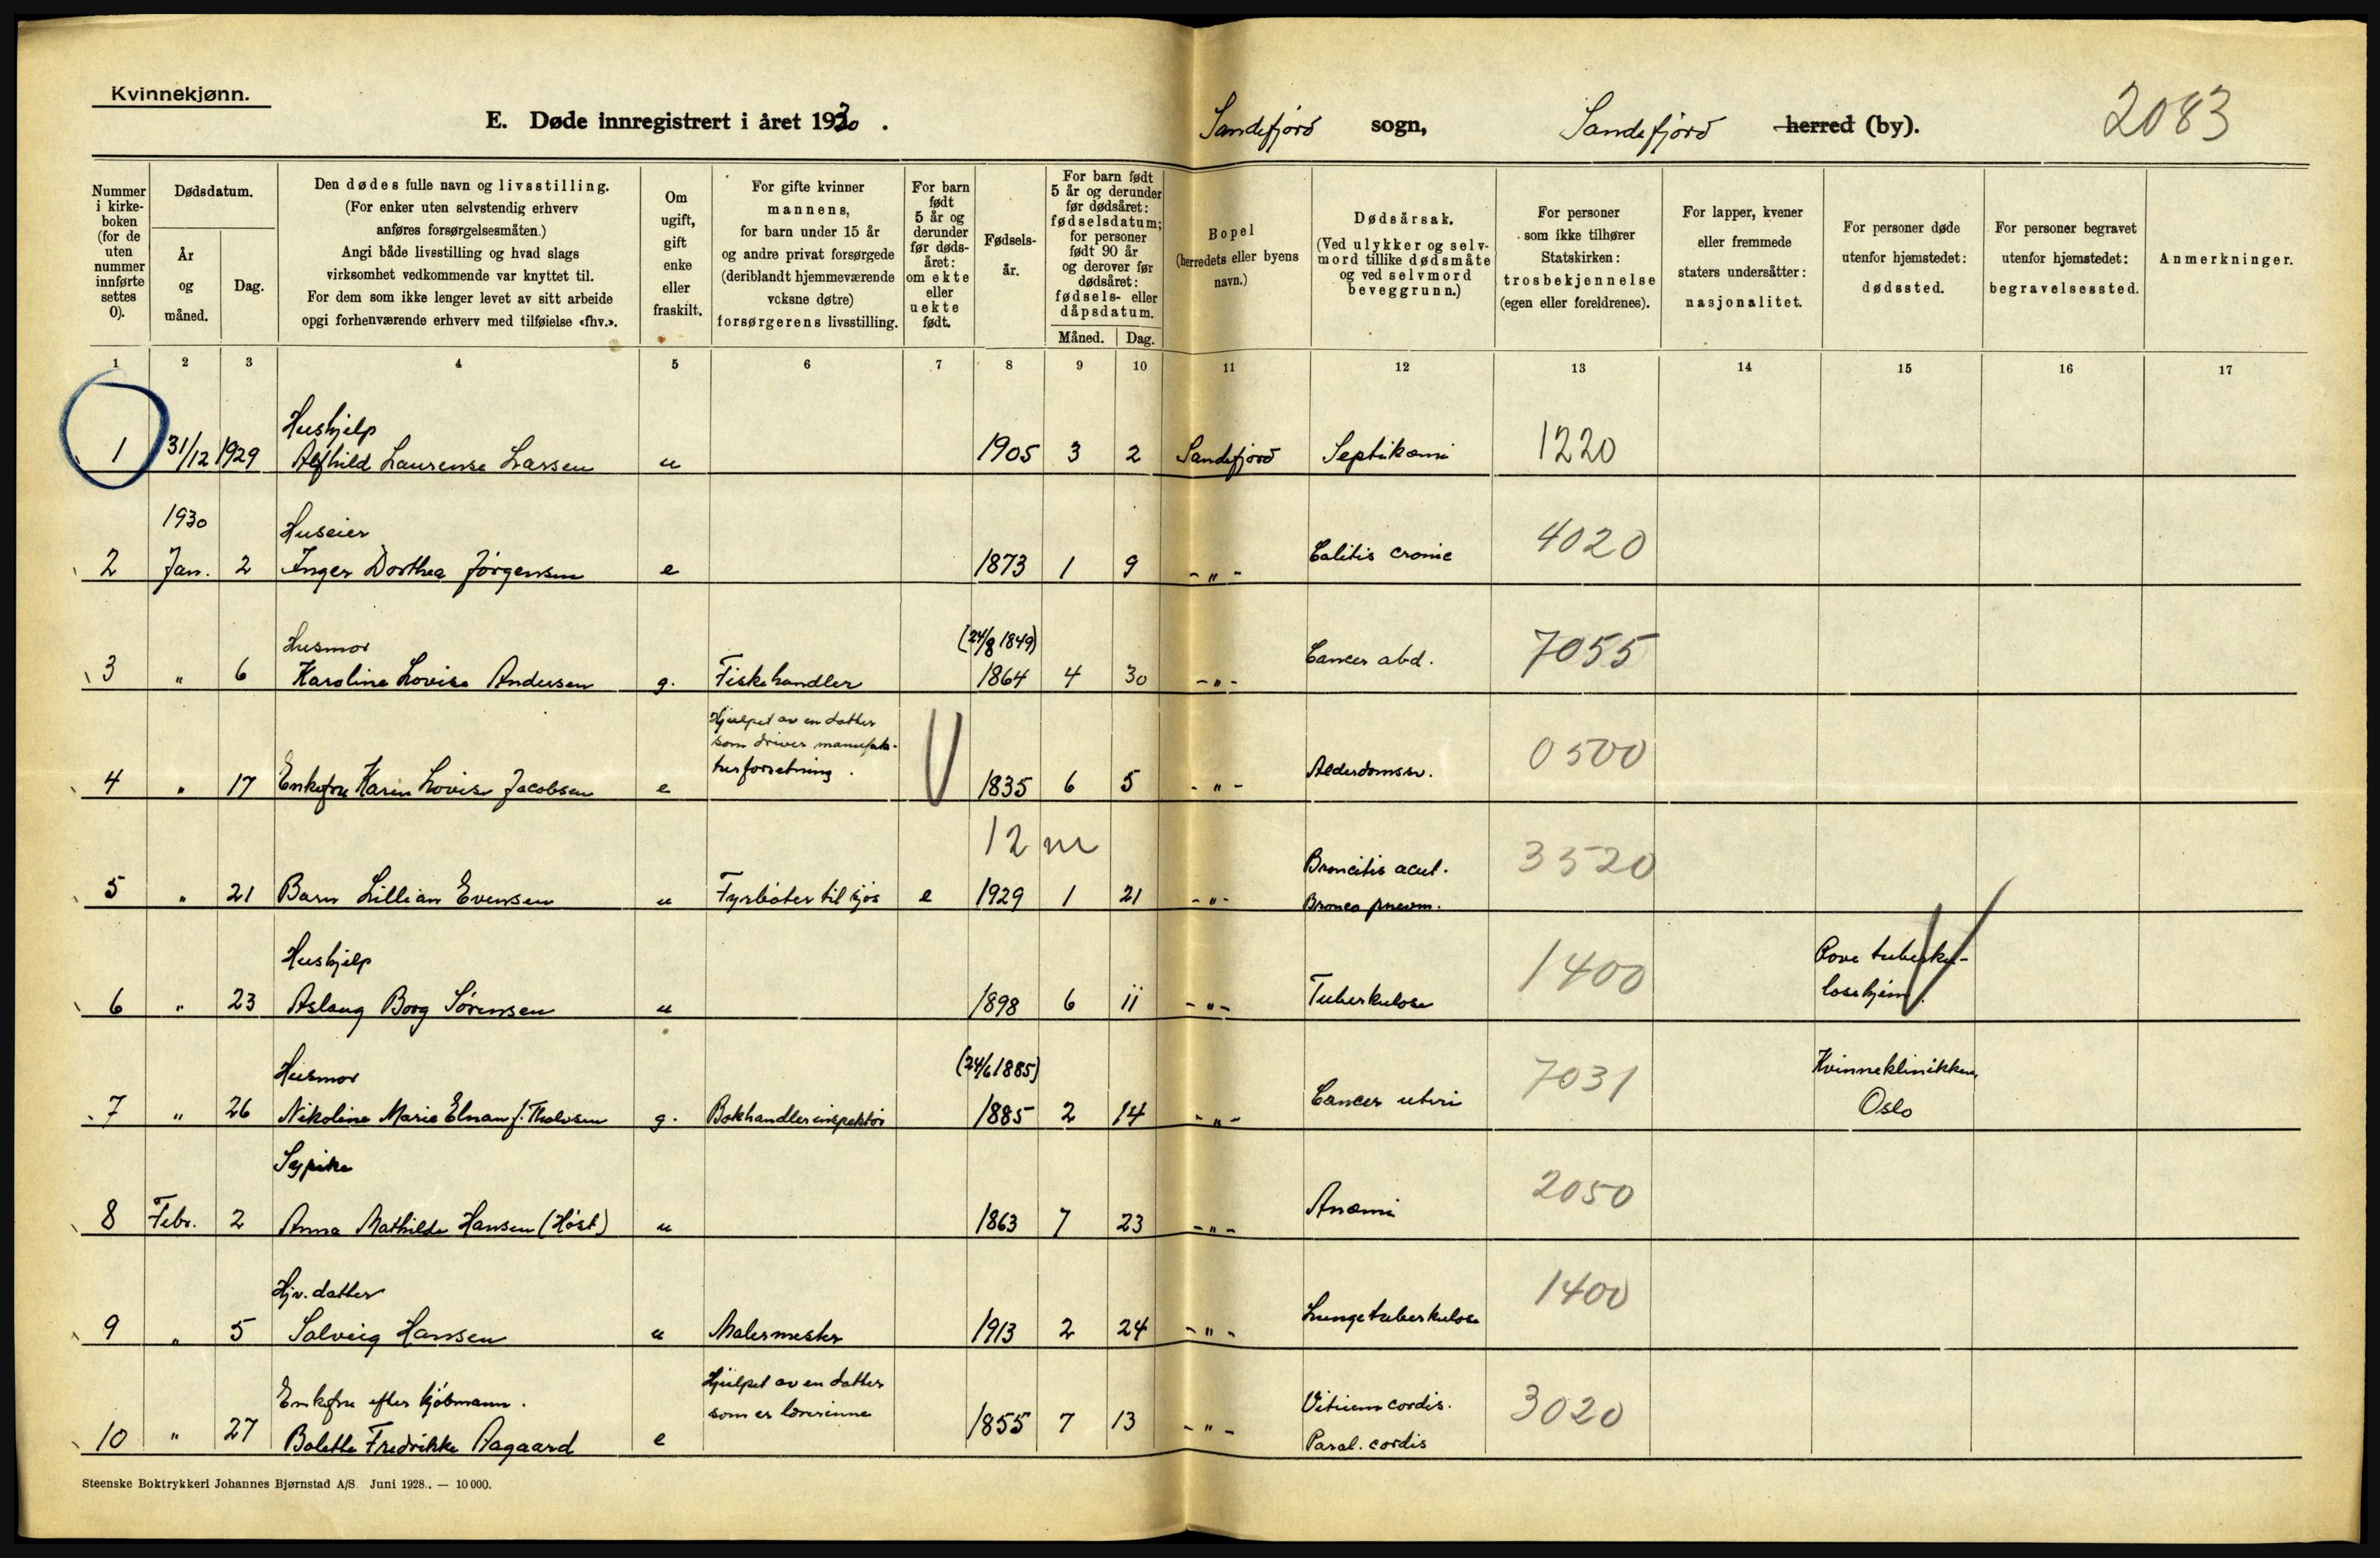 Kvinnekjønn.
E. Døde innregistrert i året 1930.
Sandefjord sogn, Sandefjord herred (by). 2083
Nummer i kirke-boken (for de uten nummer innførte settes 0).
Dødsdatum.
År og måned.
Dag.
Den dødes fulle navn og livsstilling.
(For enker uten selvstendig erhverv
anføres forsørgelsesmåten.)
Angi både livsstilling og hvad slags
virksomhet vedkommende var knyttet til.
For dem som ikke lenger levet av sitt arbeide
opgi forhenværende erhverv med tilføielse «fhv.».
Om ugift, gift enke eller fraskilt.
For gifte kvinner
mannens,
for barn under 15 år
og andre privat forsørgede
(deriblandt hjemmeværende
voksne døtre)
forsørgerens livsstilling.
For barn født 5 år og derunder før døds-året: om ekte eller uekte født.
Fødsels-år.
For barn født 5 år og derunder før dødsåret: fødselsdatum; for personer født 90 år og derover før dødsåret: fødsels- eller dåpsdatum.
Måned. Dag.
Bopel
(herredets eller byens
navn.)
Dødsårsak.
(Ved ulykker og selv-
mord tillike dødsmåte
og ved selvmord
beveggrunn.)
For personer
som ikke tilhører
Statskirken:
trosbekjennelse
(egen eller foreldrenes).
For lapper, kvener
eller fremmede
staters undersåtter:
nasjonalitet.
For personer døde
utenfor hjemstedet:
dødssted.
For personer begravet
utenfor hjemstedet:
begravelsessted.
Anmerkninger.
1 2 3 4 5 6 7 8 9 10 11 12 13 14 15 16 17
Hushjelp
1 31/12 1929 Alfhild Laurense Larsen u 1905 3 2 Sandefjord Septikæmi 1220
1930 Huseier
2 Jan. 2 Inger Dorthea Jørgensen e 1873 1 9 -"- Colitis cronic 4020
Husmor (24/8 1849)
3 " 6 Karoline Lovise Andersen g. Fiskehandler 1864 4 30 -"- Cancer abd. 7055
Hjulpet av en datter
som driver manufak-
turforretning.
4 " 17 Enkefru Karen Lovise Jacobsen e 1835 6 5 -"- Alderdomssv. 0500
12 m
Broncitis acut. 3520
5 " 21 Barn Lillian Evensen u Fyrbøter til sjøs e 1929 1 21 -"- Bronco pneum.
Hushjelp Rove tuberku-
6 " 23 Aslaug Borg Sørensen u 1898 6 11 -"- Tuberkulose 1400 losehjem.
Husmor (24/6 1885) Kvinneklinikken,
7 " 26 Nikoline Marie Elnan f. Tholvsen g. Bokhandlerinspektør 1885 2 14 -"- Cancer uteri 7031 Oslo
Sypike
8 Febr. 2 Anna Mathilde Hansen (Høst) u 1863 7 23 -"- Anæmi 2050
Hjv. datter
9 " 5 Solveig Hansen u Malermester 1913 2 24 -"- Lungetuberkulose 1400
Enkefru efter kjøbmann. Hjulpet av en datter Vitium cordis. 3020
som er lærerinne
10 " 27 Bolette Fredrikke Aagaard e 1855 7 13 -"- Paral. cordis
Steenske Boktrykkeri Johannes Bjørnstad A/S. Juni 1928.. — 10 000.